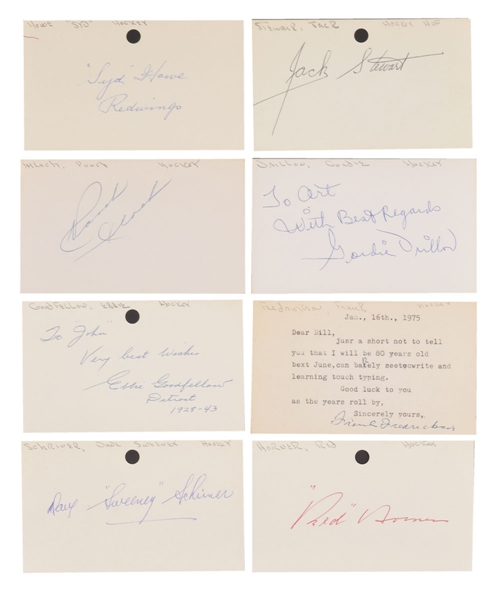 Howe "SYD" HOCKEY
"Syd" Howe
Redwings
STEWART, JACK HOCKEY HOF
Jack Stewart
HOCKEY
DRILLON, GORDIE HOCKEY
To Art
With Best Regards
Gordie Drillon
GOODFELLOW, EBBIE HOCKEY
To "John"
Very best wishes
Ebbie Goodfellow
Detroit
1928-43
Fredrickson, Frank HOCKEY
Jan., 16th., 1975
Dear Bill,
Just a short not to tell
you that I will be 80 years old
bext June,can barely see to write and
learning touch typing.
Good luck to you
as the years roll by,
Sincerely yours,
Frank Fredrickson
SCHRINER, Dave SWEENEY HOCKEY
Dave "Sweeney" Schriner
HORNER, RED HOCKEY
"Red" Horner